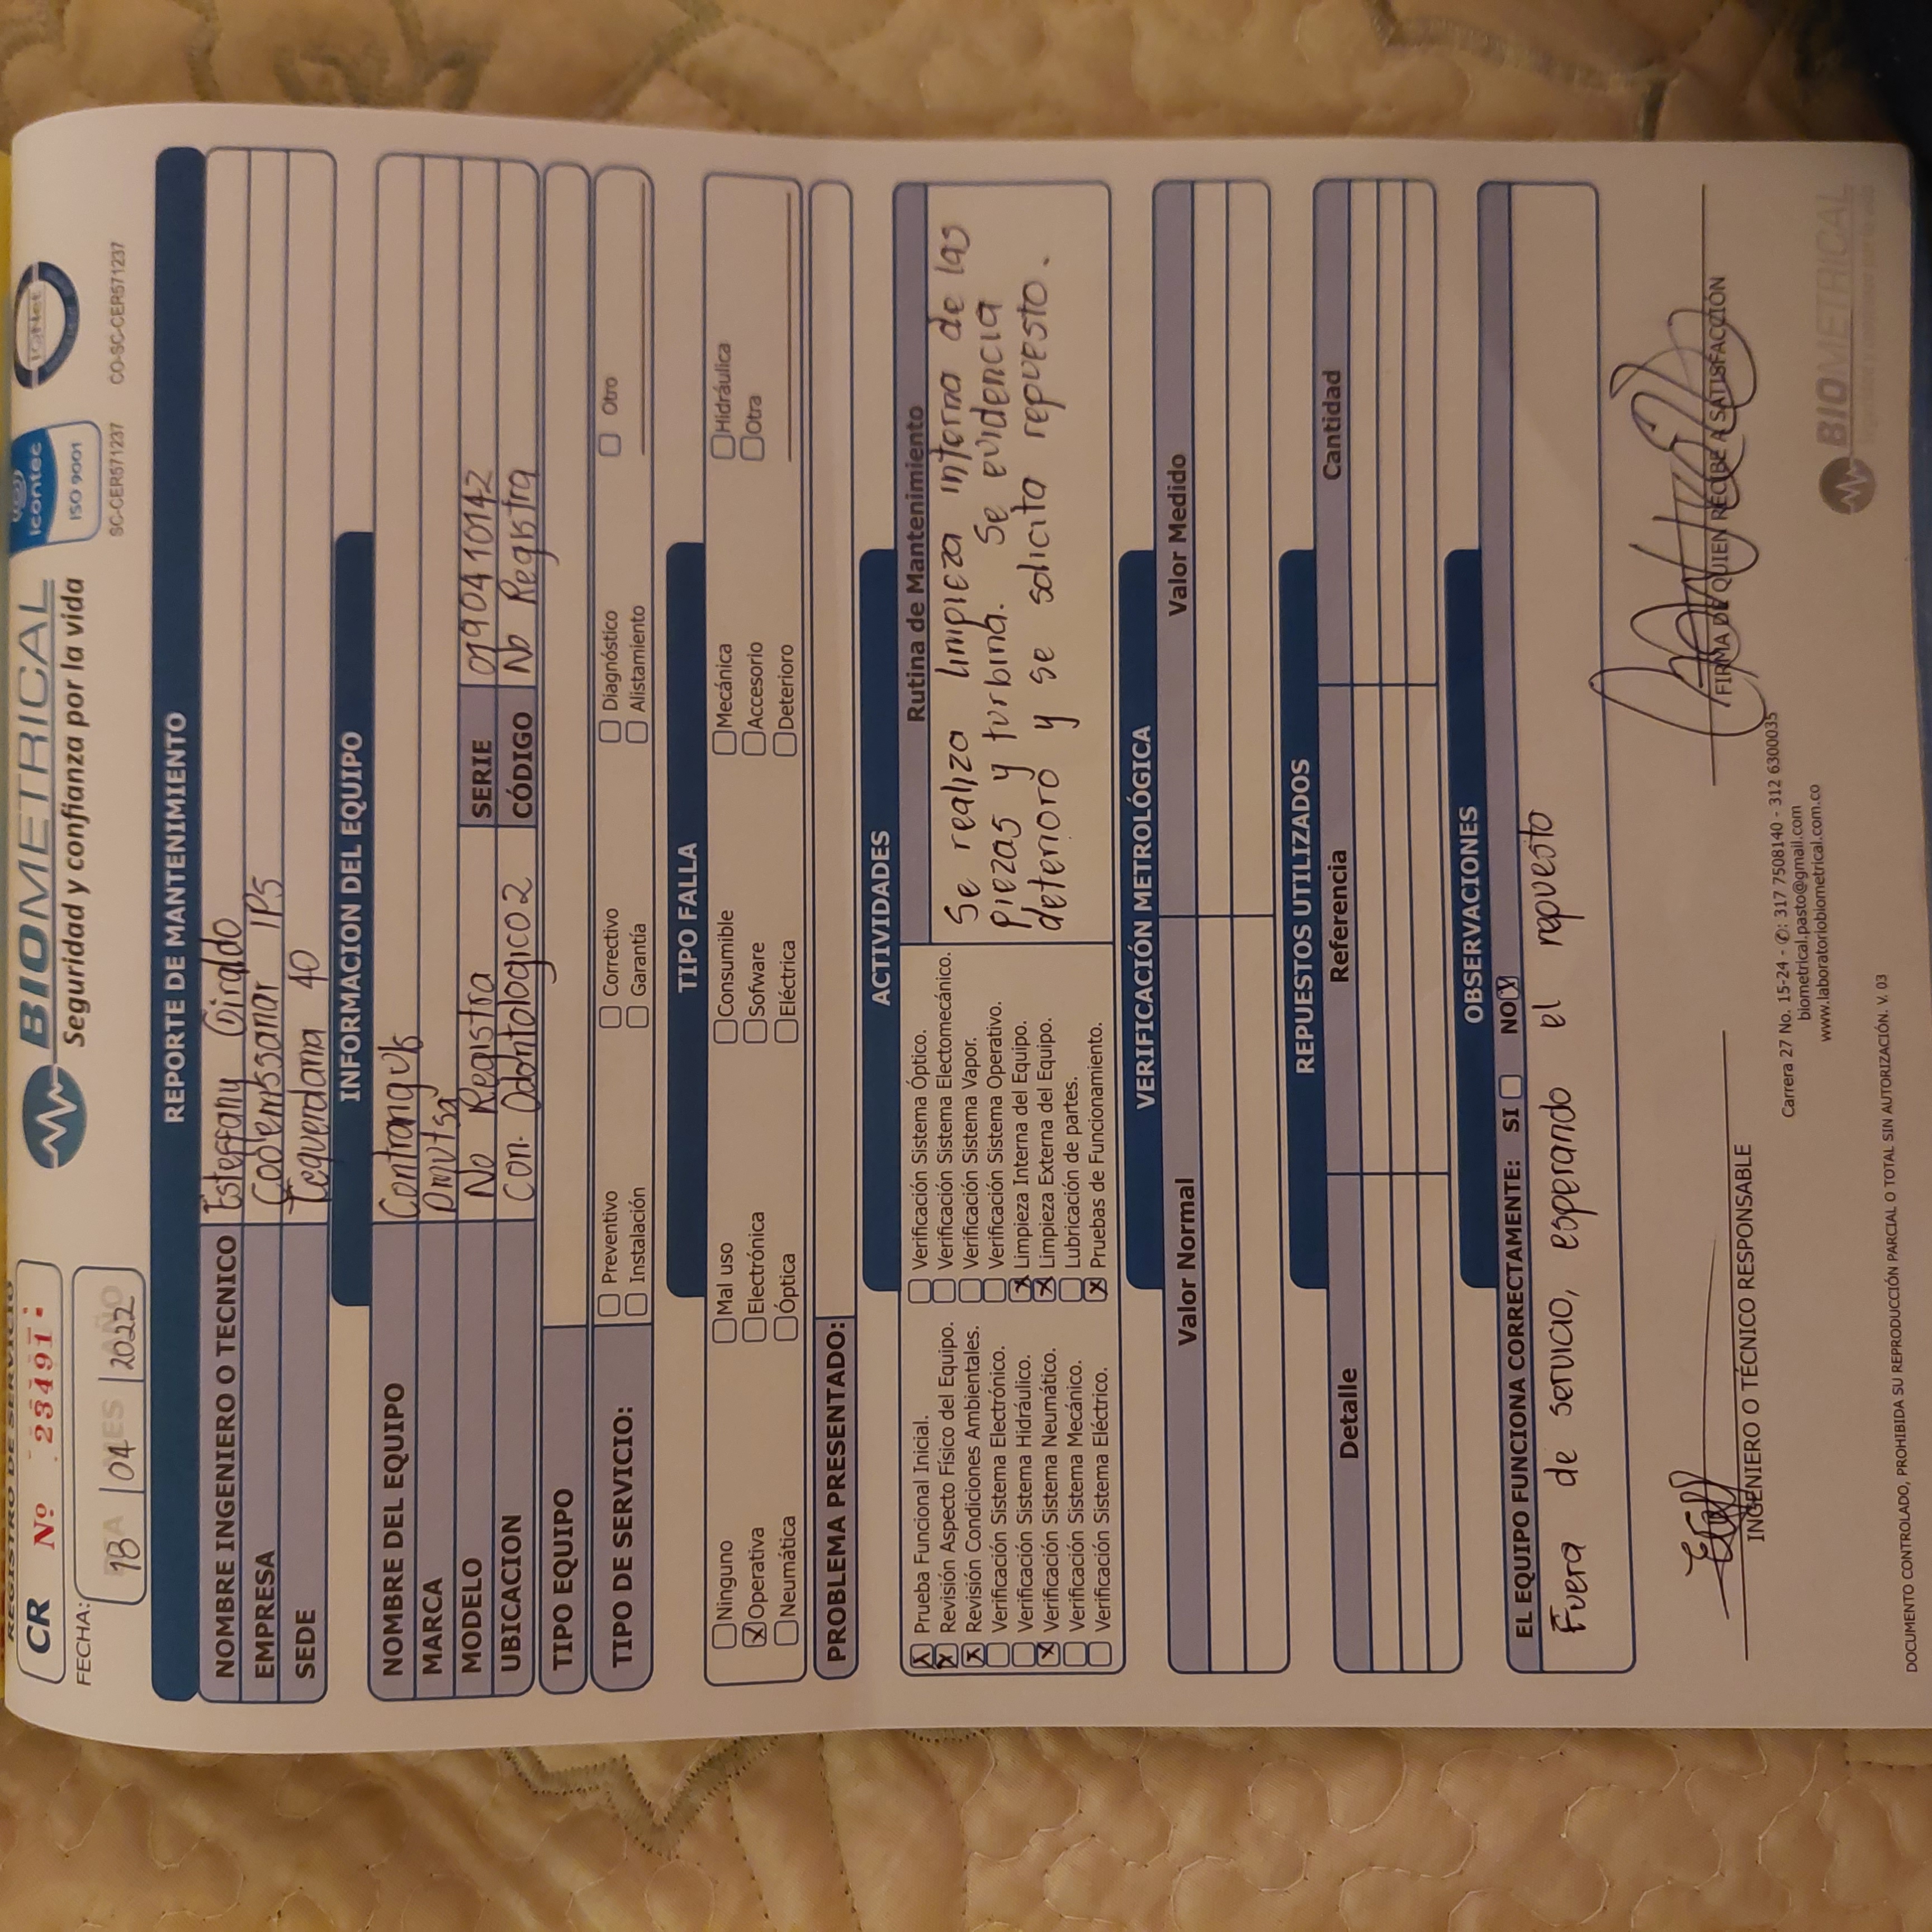 REGISTRO DE SERVICIO
CR Nº 23491
FECHA:
DIA MES AÑO
18 04 2022
BIOMETRICAL
Seguridad y confianza por la vida
icontec
ISO 9001
SC-CER571237
IQNet
CO-SC-CER571237
REPORTE DE MANTENIMIENTO
NOMBRE INGENIERO O TECNICO Esteffany Giraldo
EMPRESA Codemssanar IPS
SEDE Tequendama 40
INFORMACION DEL EQUIPO
NOMBRE DEL EQUIPO
MARCA Dmutsa
MODELO No Registra SERIE 0190410142
UBICACION Con. Odontologico 2 CÓDIGO No Registra
TIPO EQUIPO
TIPO DE SERVICIO:
Preventivo Correctivo Diagnóstico Otro
Instalación Garantía Alistamiento
TIPO FALLA
Ninguno Mal uso Consumible Mecánica Hidráulica
Operativa Electrónica Sofware Accesorio Otra
Neumática Óptica Eléctrica Deterioro
PROBLEMA PRESENTADO:
ACTIVIDADES
Prueba Funcional Inicial.
Revisión Aspecto Físico del Equipo.
Revisión Condiciones Ambientales.
Verificación Sistema Electrónico.
Verificación Sistema Hidráulico.
Verificación Sistema Neumático.
Verificación Sistema Mecánico.
Verificación Sistema Eléctrico.
Verificación Sistema Óptico.
Verificación Sistema Electomecánico.
Verificación Sistema Vapor.
Verificación Sistema Operativo.
Limpieza Interna del Equipo.
Limpieza Externa del Equipo.
Lubricación de partes.
Pruebas de Funcionamiento.
Rutina de Mantenimiento
Se realiza limpieza interna de las
piezas y turbina. Se evidencia
deterioro y se solicita repuesto.
VERIFICACIÓN METROLÓGICA
Valor Normal Valor Medido
REPUESTOS UTILIZADOS
Detalle Referencia Cantidad
OBSERVACIONES
EL EQUIPO FUNCIONA CORRECTAMENTE: SI NO
Fuera de servicio, esperando el repuesto
INGENIERO O TÉCNICO RESPONSABLE
FIRMA DE QUIEN RECIBE A SATISFACCIÓN
Carrera 27 No. 15-24 - ✆: 317 7508140 - 312 6300035
biometrical.pasto@gmail.com
www.laboratoriobiometrical.com.co
BIOMETRICAL
Seguridad y confianza por la vida
DOCUMENTO CONTROLADO, PROHIBIDA SU REPRODUCCIÓN PARCIAL O TOTAL SIN AUTORIZACIÓN. V. 03